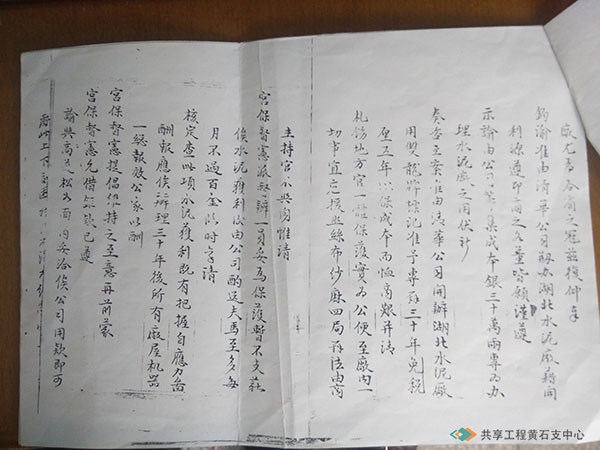 廠尤為各省之冠茲復仰蒙
鈞諭准由清華公司創辦湖北水泥廠藉開
利源遵即商之各董皆願謹遵
示諭由公司集成本銀三十萬兩專為办
理水泥廠之用伏計
奏咨立案准由清華公司開辦湖北水泥廠
用雙龍牌標記准予專利三十年免税
厘五年以保成本而恤商艱并請
札飭地方官一體保護實為公便至廠內一
切事宜應援照絲布紗麻四局辦法由商
主持官不與聞惟請
宮保督憲派委辦一員妥為保護暫不支薪
俟水泥獲利後由公司酌送夫馬至多每
月不過百金臨時定請
核定查此項水泥獲利既有把握自應力圖
酬報應俟辦理三十年後所有廠屋机器
一總報效公家以酬
宮保督憲提倡維持之至意再前蒙
宮保督憲允借款已遵
諭與高道松如面內妥洽俟公司用欵即可